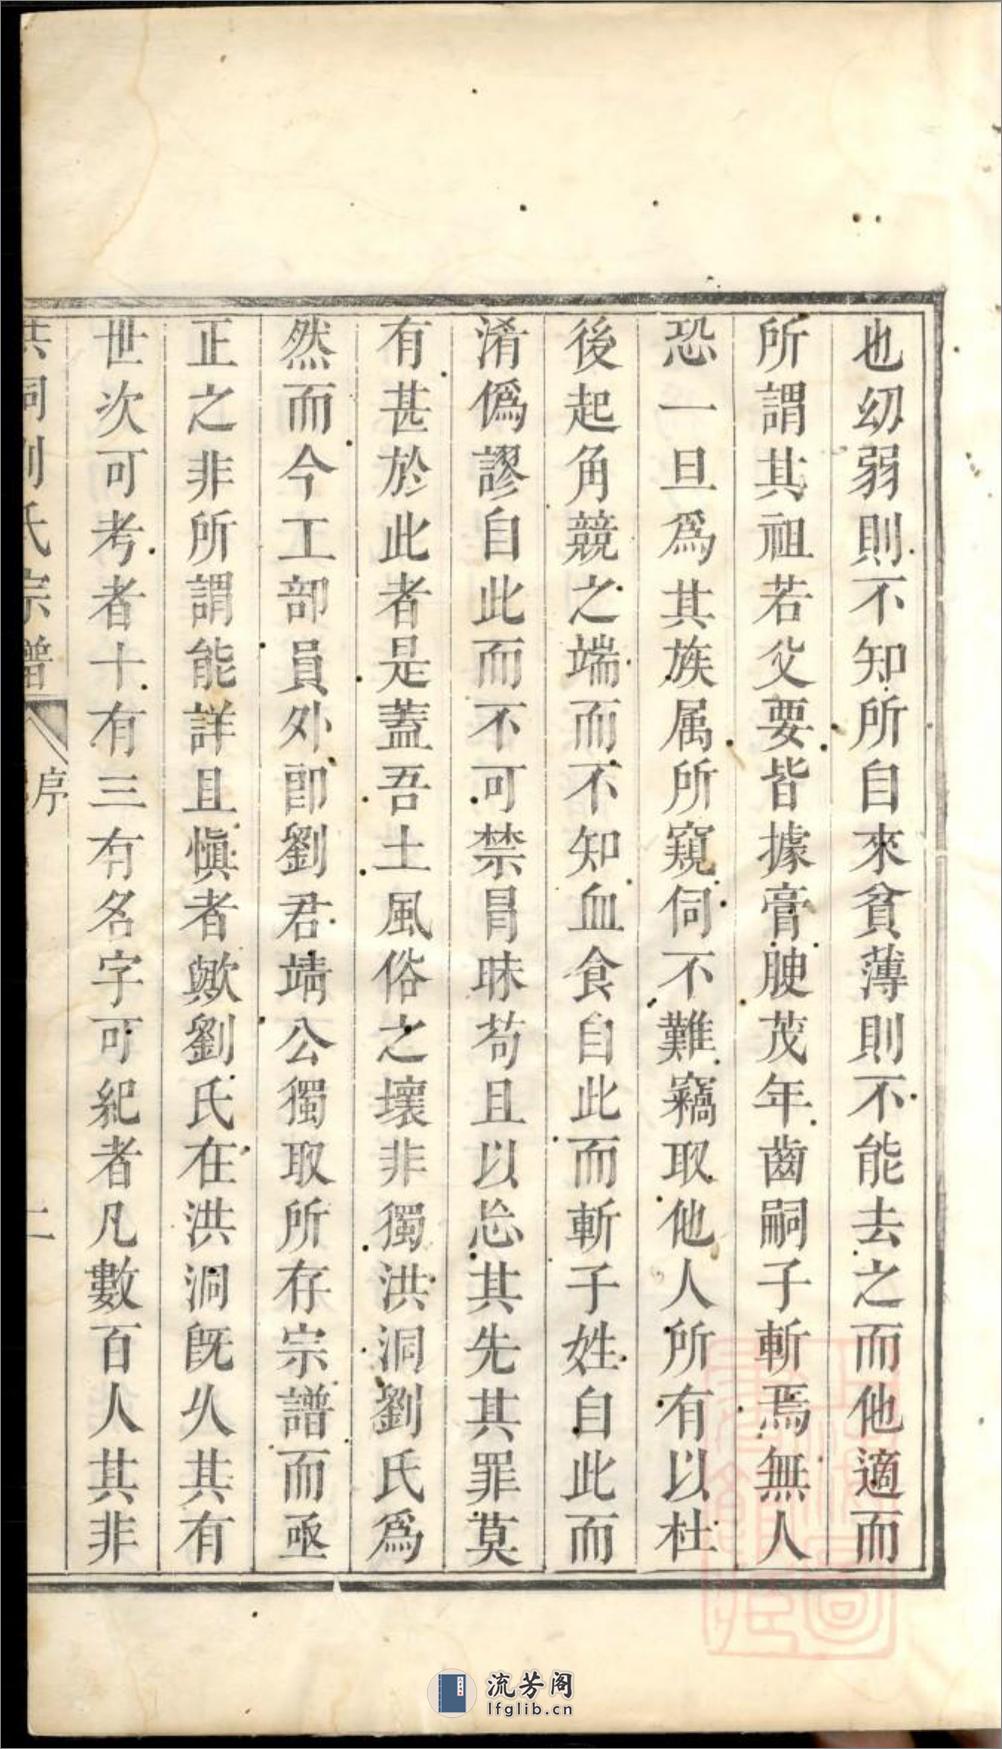 也幼弱則不知所自來貧薄則不能去之而他適而
所謂其祖若父要皆據膏腴茂年齒嗣子斬焉無人
恐一旦爲其族属所窺伺不難竊取他人所有以杜
後起角競之端而不知血食自此而斬子姓自此而
淆僞謬自此而不可禁冐昧苟且以忘其先其罪莫
有甚於此者是蓋吾土風俗之壞非獨洪洞劉氏爲
然而今工部員外郎劉君靖公獨取所存宗譜而亟
正之非所謂能詳且愼者歟劉氏在洪洞既乆其有
世次可考者十有三有名字可紀者凡數百人其非
洪洞劉氏宗譜 序 二
流芳阁
lfglib.cn